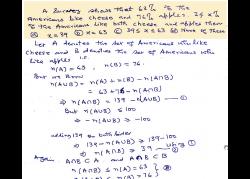 A Survey shows that 63% to the
Americans like cheese and 76% apples. If x%
to the Americans like both cheese and apples then
x = 39 x = 63 39 ≤ x ≤ 63 None of these
Let A denotes the set of Americans who like
cheese and B denotes the set of Americans who
like apples i.e.
n(A) = 63, n(B) = 76.
But we know
n(AUB) = n(A) + n(B) - n(A∩B)
= 63 + 76 - n(A∩B)
⇒ n(A∩B) = 139 - n(AUB) — ①
But n(AUB) ≤ 100
⇒ -n(AUB) ≥ -100
adding 139 on both sides
⇒ 139 - n(AUB) ≥ 139 - 100
⇒ n(A∩B) ≥ 39 — using ①
Again A∩B ⊂ A and A∩B ⊂ B
n(A∩B) ≤ n(A) = 63
n(A∩B) ≤ n(B) = 76